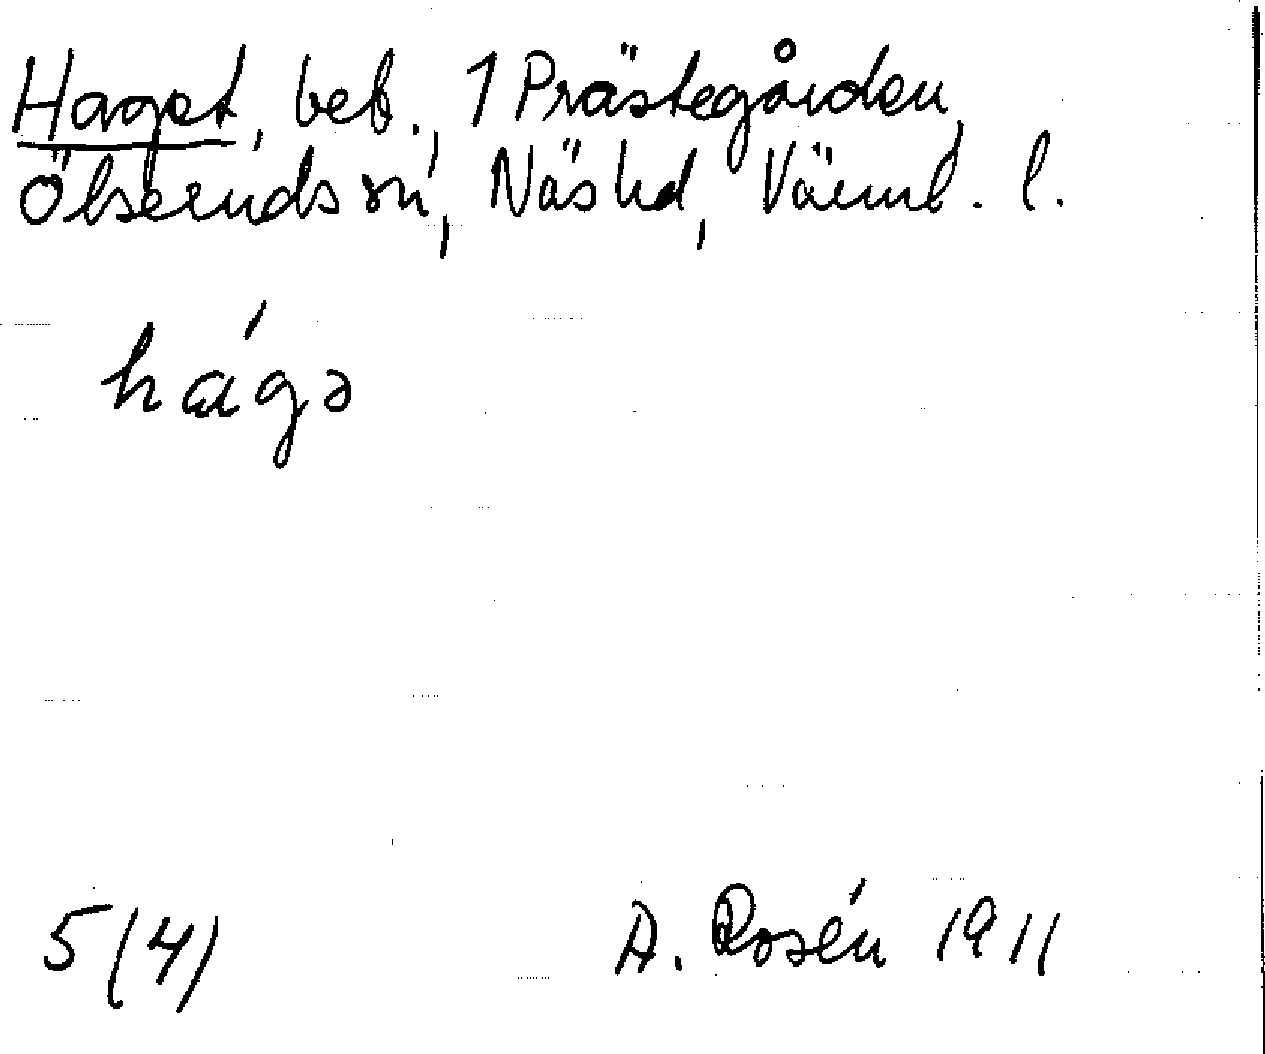 Haget, beb., 1 Prästegården,
Ölseruds sn, Näs hd, Värml. l.
hágə
5(4)
A. Rosén 1911